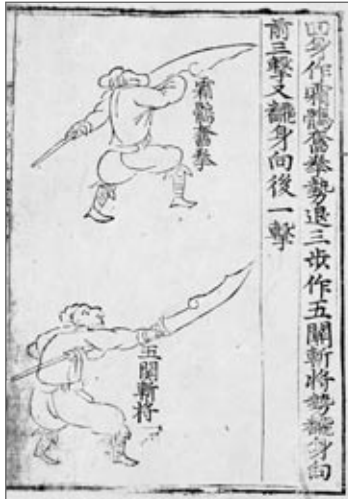 回身作霜鶻奮拳勢退三步作五關斬將勢飜身向
前三擊又飜身向後一擊
霜鶻奮拳
五關斬將